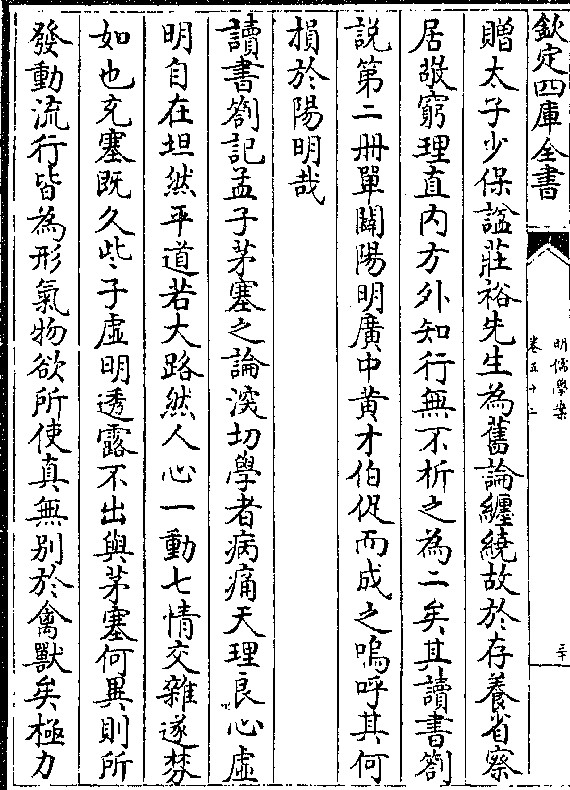 欽定四庫全書
明儒學案
卷五十二
三十
贈太子少保諡莊裕先生為舊論纏繞故於存養省察
居敬窮理直内方外知行無不析之為二矣其讀書劄
説第二册單闢陽明廣中黄才伯促而成之嗚呼其何
損於陽明哉
讀書劄記孟子茅塞之論深切學者病痛天理良心虚
明自在坦然平道若大路然人心一動七情交雜遂棼
如也充塞既久些子虚明透露不出與茅塞何異則所
發動流行皆為形氣物欲所使真無别於禽獸矣極力